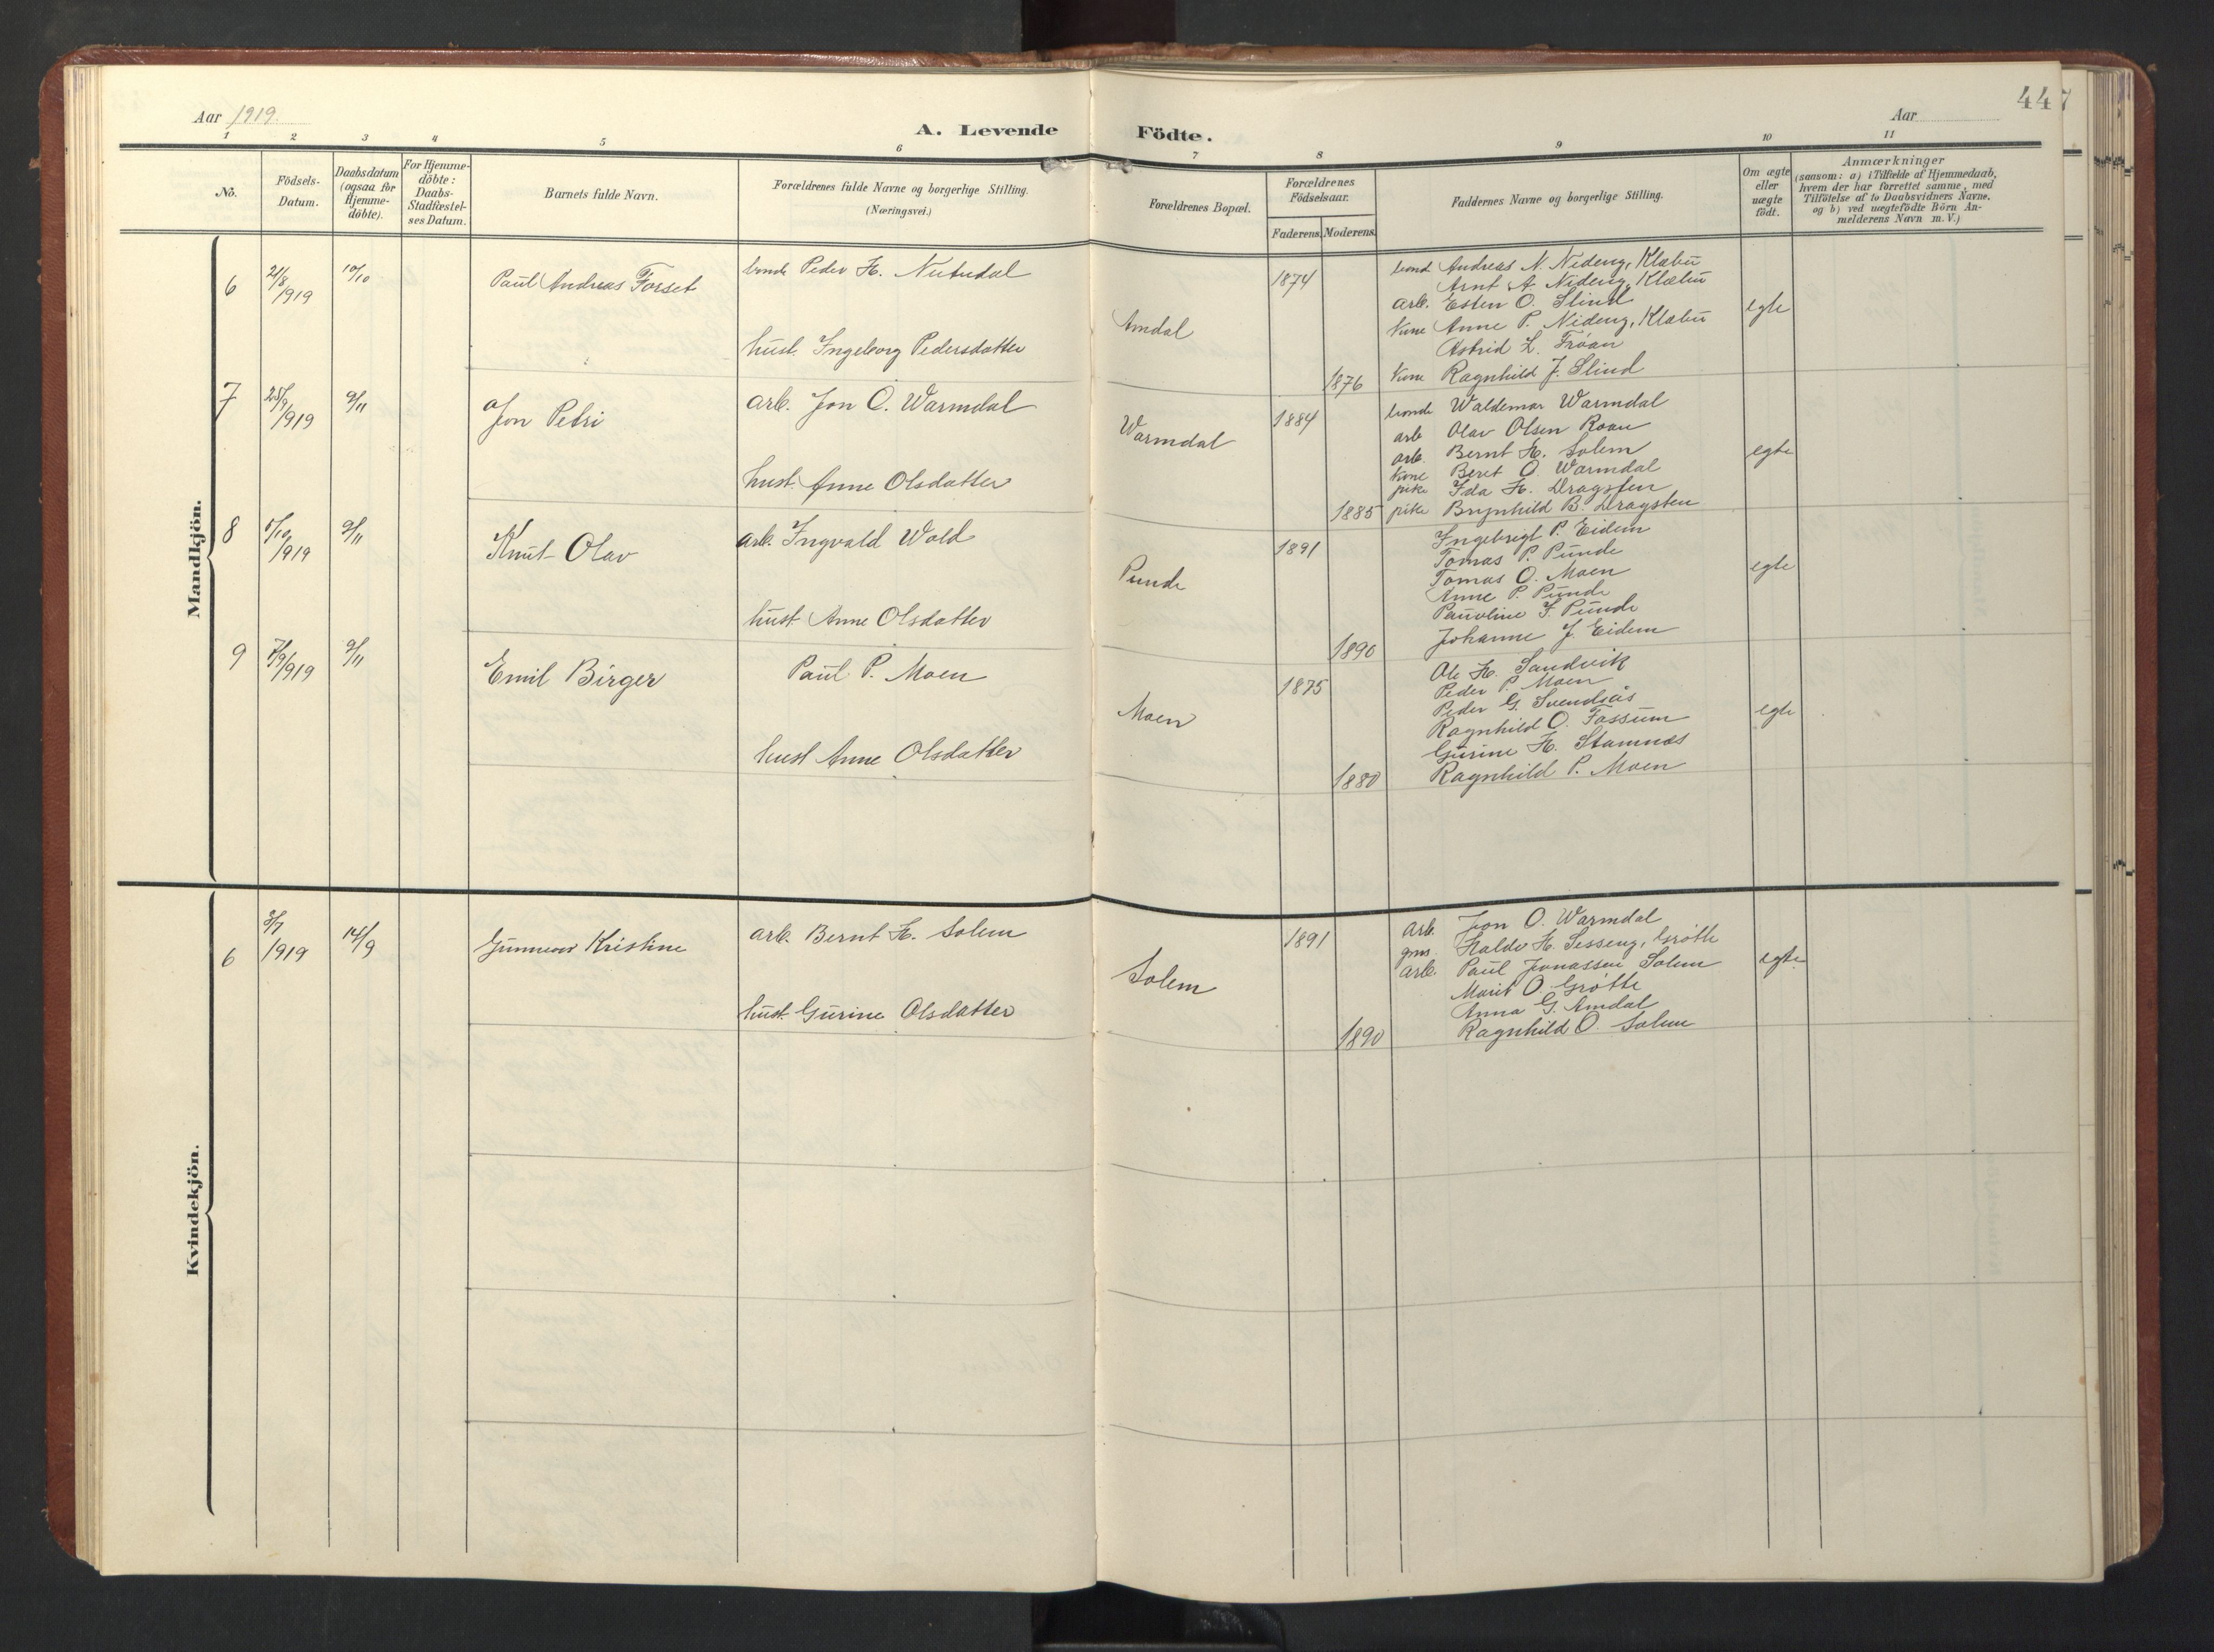 Aar 1919.
A. Levende Födte.
Aar
447
1 2 3 4 5 6 7 8 9 10 11
No.
Födsels-Datum.
Daabsdatum (ogsaa for Hjemme-döbte).
For Hjemme-döbte: Daabs-Stadfæstel-ses Datum.
Barnets fulde Navn.
Forældrenes fulde Navne og borgerlige Stilling. (Næringsvei.)
Forældrenes Bopæl.
Forældrenes Födselsaar.
Faderens. Moderens.
Faddernes Navne og borgerlige Stilling.
Om ægte eller uægte födt.
Anmærkninger
(saasom: a) i Tilfælde af Hjemmedaab,
hvem der har forrettet samme, med
Tilföielse af to Daabsvidners Navne.
og b) ved uægtefödte Börn An-
melderens Navn m. V.)
Mandkjön.
6 21/8 1919 10/10 Paul Andreas Forset
bonde Peder H. Nutudal
hust. Ingeborg Pedersdatter
Amdal
1874
1876
bond Andreas N. Nideng, Klæbu
Arnt A. Nideng, Klæbu
arb. Esten O. Slind
kone Anne P. Nideng, Klæbu
Astrid L. Frøan
kone Ragnhild J. Slind
egte
7 25/9 1919 9/11 Jon Petri
arb. Jon O. Warmdal
hust. Anne Olsdatter
Warmdal
1884
1885
bonde Waldemar Warmdal
arb Olav Olsen Roan
arb. Bernt H. Solem
kone Beret O. Warmdal
pike Ida H. Dragsten
pike Brynhild B. Dragsten
egte
8 5/10 1919 9/11 Knut Olav
arb. Ingvald Wold
hust Anne Olsdatter
Punde
1891
1890
Ingebrigt P. Eidem
Tomas P. Punde
Tomas O. Moen
Anne P. Punde
Pauline F. Punde
Johanne J. Eidem
egte
9 7/9 1919 9/11 Emil Birger
Paul P. Moen
hust Anne Olsdatter
Moen
1875
1880
Ole H. Sandvik
Peder P. Moen
Peder G. Svendsås
Ragnhild O. Fossum
Gurine H. Stamnes
Ragnhild P. Moen
egte
Kvindekjön.
6 3/7 1919 14/9 Gunnvor Kristine
arb. Bernt H. Solem
hust. Gurine Olsdatter
Solem
1891
1890
arb. Jon O. Warmdal
gm. Haldo H. Sesseng, Grøtte
arb. Paul Jonassen Solem
Marit O. Grøtte
Anna G. Amdal
Ragnhild O. Solem
egte